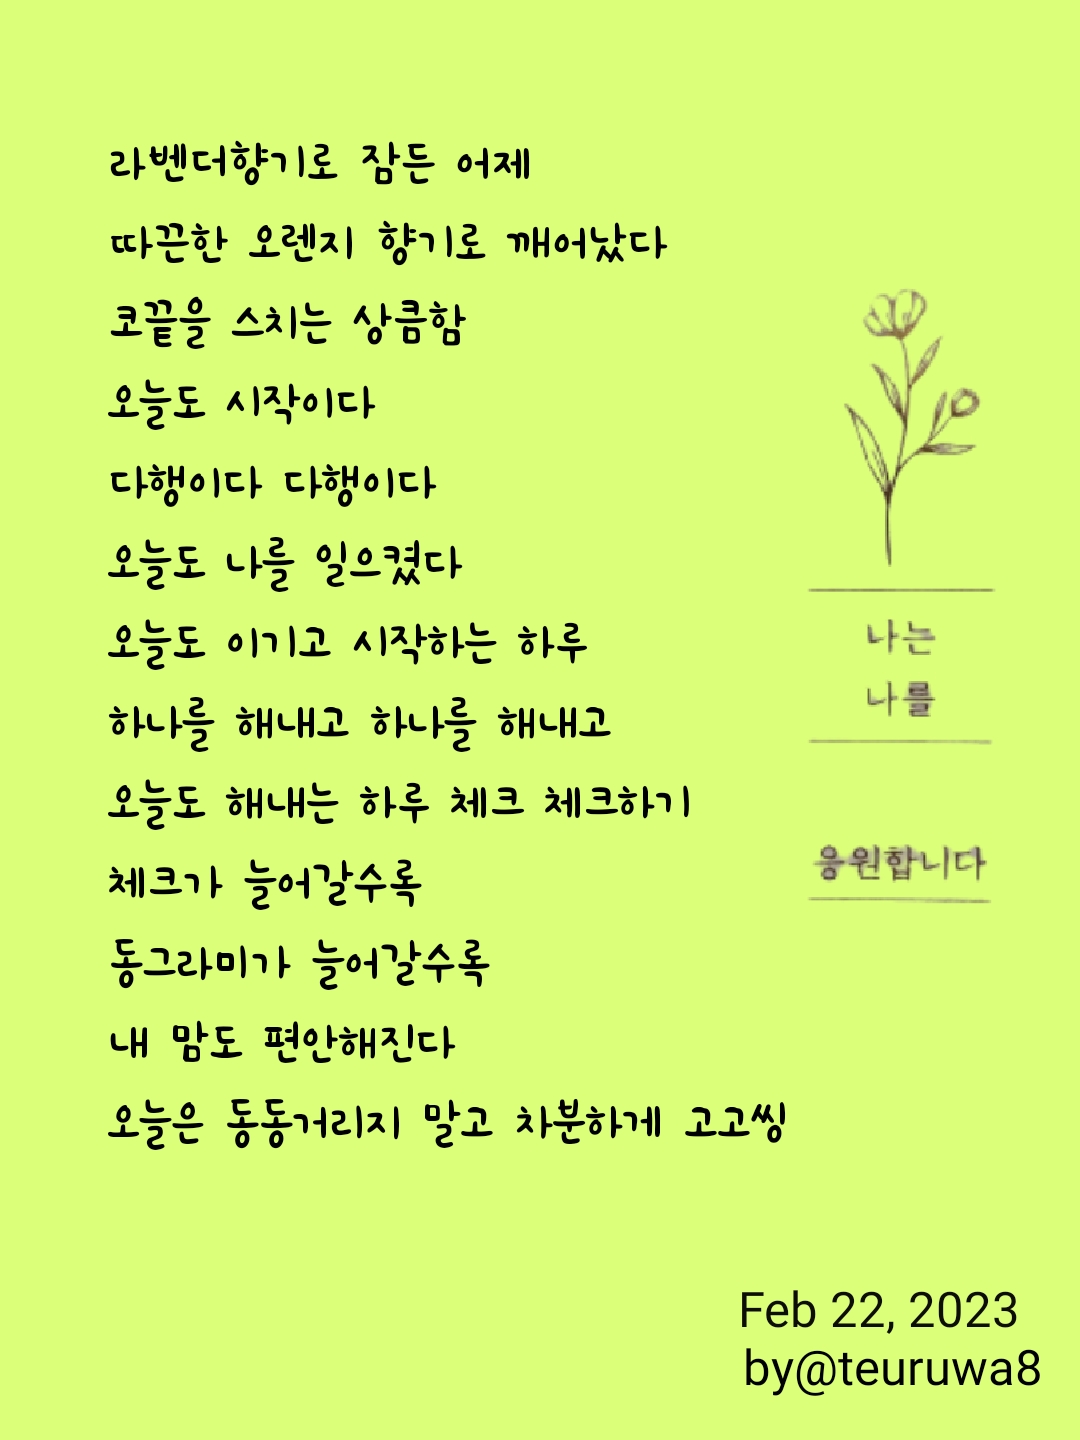 라벤더향기로 잠든 어제
따끈한 오렌지 향기로 깨어났다
코끝을 스치는 상큼함
오늘도 시작이다
다행이다 다행이다
오늘도 나를 일으켰다
오늘도 이기고 시작하는 하루
하나를 해내고 하나를 해내고
오늘도 해내는 하루 체크 체크하기
체크가 늘어갈수록
동그라미가 늘어갈수록
내 맘도 편안해진다
오늘은 동동거리지 말고 차분하게 고고씽
나는
나를
응원합니다
Feb 22, 2023
by@teuruwa8